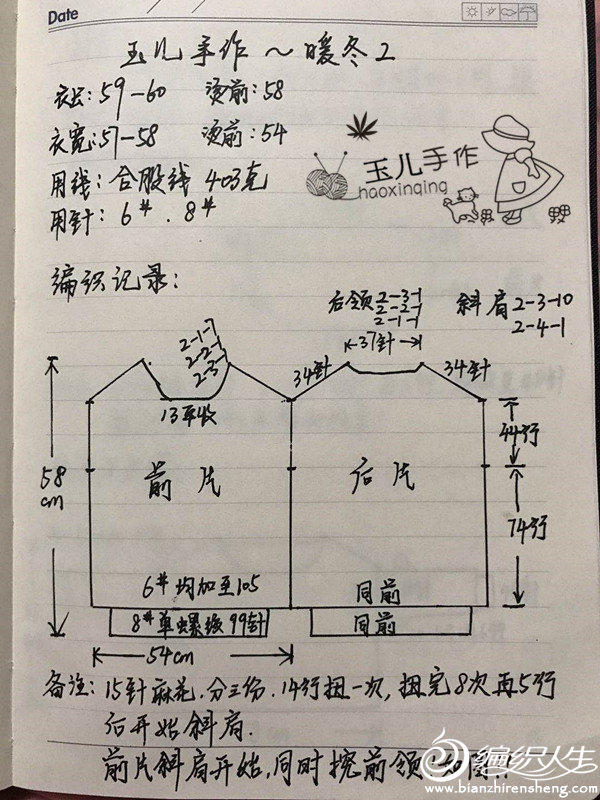 Date
玉儿手作～暖冬2
衣长：59—60 烫前：58
衣宽：57—58 烫前：54
用线：合股线 403克
用针：6#．8#
玉儿手作
haoxinqing
编织记录：
后领2-3-1
2-2-1
2-1-1
斜肩2-3-10
2-4-1
37针
2-1-7
2-2-
2-3-
34针
34针
13平收
44行
58cm
前片
后片
74行
6#均加至105
同前
8#单螺纹99针
同前
54cm
备注：15针麻花．分三份．14行扭一次，扭完8次再5行
后开始斜肩．
前片斜肩开始，同时挖前领
编织人生
www.bianzhirensheng.com